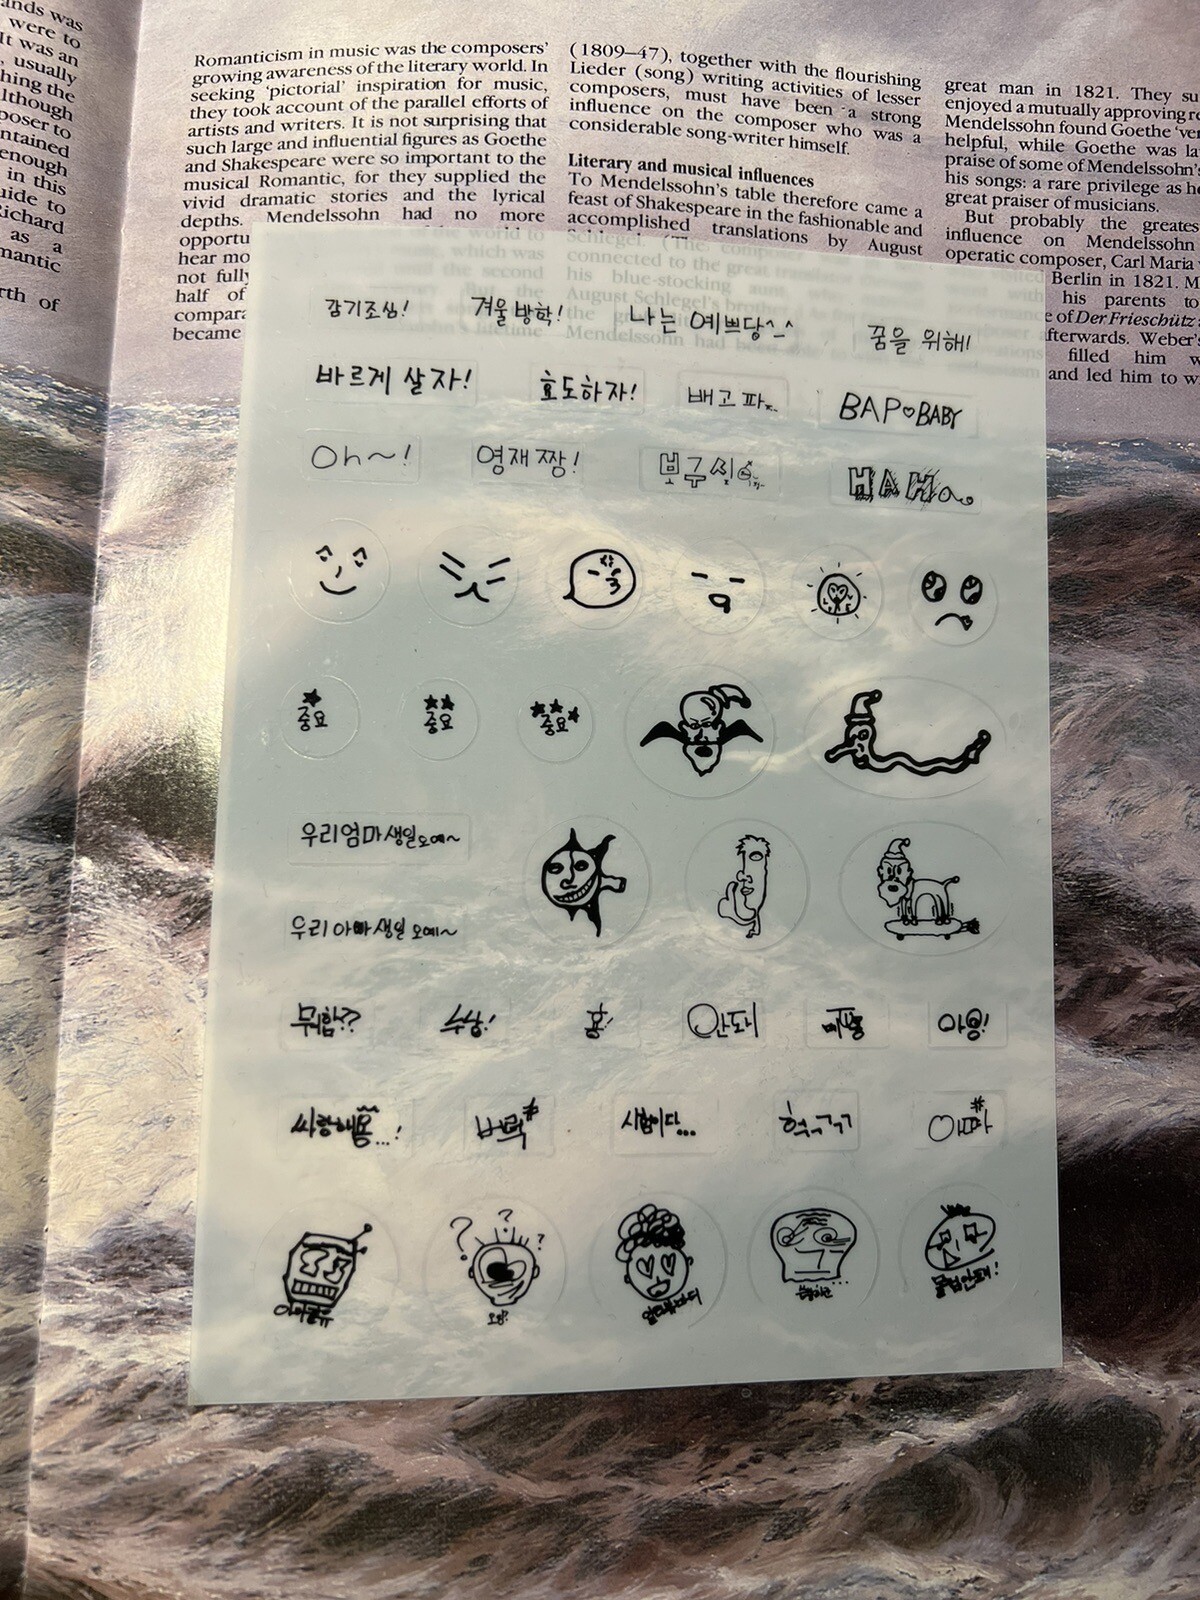 ands was
were to
It was an
usually
hing the
lthough
poser to
ntained
enough
in this
uide to
Richard
as a
mantic
rth of
Romanticism in music was the composers'
growing awareness of the literary world. In
seeking 'pictorial' inspiration for music,
they took account of the parallel efforts of
artists and writers. It is not surprising that
such large and influential figures as Goethe
and Shakespeare were so important to the
musical Romantic, for they supplied the
vivid dramatic stories and the lyrical
depths. Mendelssohn had no more
opportu
hear mo which was
not fully the second
half of
compara
became
(1809–47), together with the flourishing
Lieder (song) writing activities of lesser
composers, must have been a strong
influence on the composer who was a
considerable song-writer himself.
Literary and musical influences
To Mendelssohn's table therefore came a
feast of Shakespeare in the fashionable and
accomplished translations by August
Schlegel. (The composer
connected to the great
his blue-stocking aunt
August Schlegel's brother
Mendelssohn had been
great man in 1821. They su
enjoyed a mutually approving re
Mendelssohn found Goethe 've
helpful, while Goethe was la
praise of some of Mendelssohn's
his songs: a rare privilege as he
great praiser of musicians.
But probably the greates
influence on Mendelssohn
operatic composer, Carl Maria
Berlin in 1821. M
with his parents to
e of Der Frieschütz
fterwards. Weber's
filled him w
and led him to w
감기조심! 겨울방학! 나는 예쁘당^_^ 꿈을 위해!
바르게 살자! 효도하자! 배고파... BAP♡BABY
Oh~! 영재짱! 보구싶 HAHa
★ 중요 ★★ 중요 ★★★ 중요
우리엄마생일오예~
우리아빠생일오예~
뭐함?? 수상! 흥! 안돼 아잉!
싸랑해용...! 버럭# 시험이다... 헉ㄱㄱㄱ
? ? ?